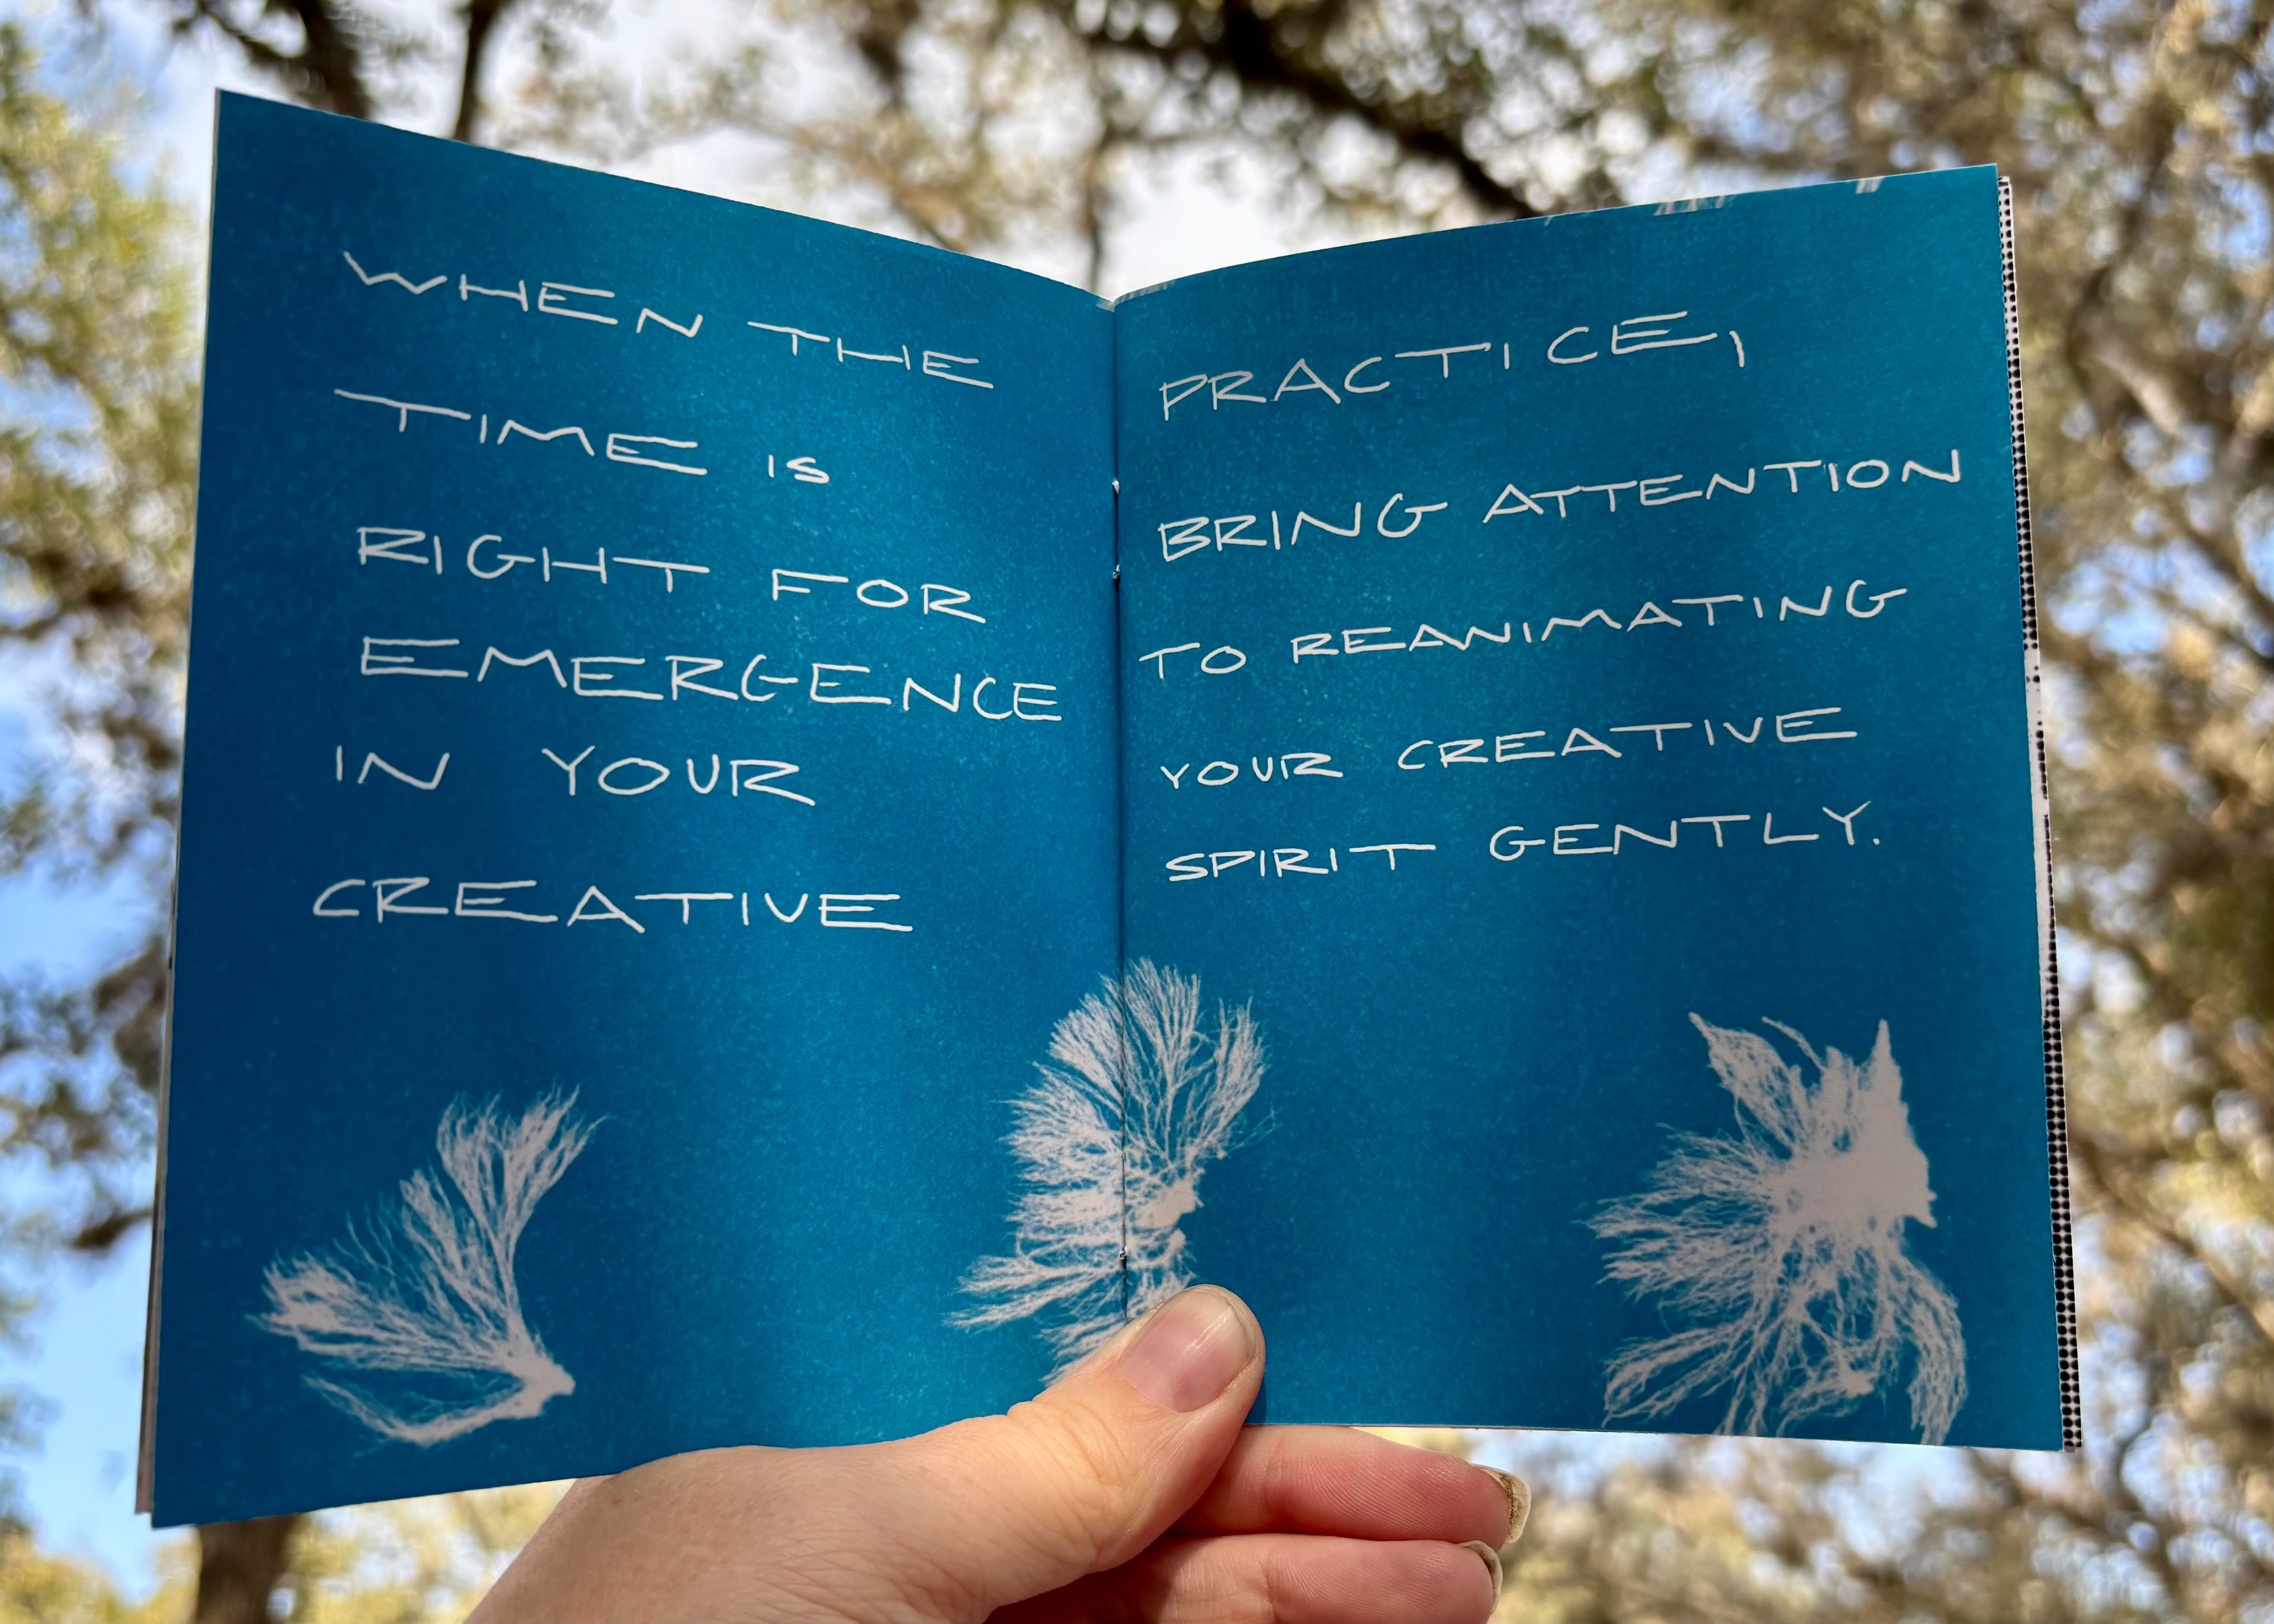 WHEN THE
TIME IS
RIGHT FOR
EMERGENCE
IN YOUR
CREATIVE
PRACTICE,
BRING ATTENTION
TO REANIMATING
YOUR CREATIVE
SPIRIT GENTLY.